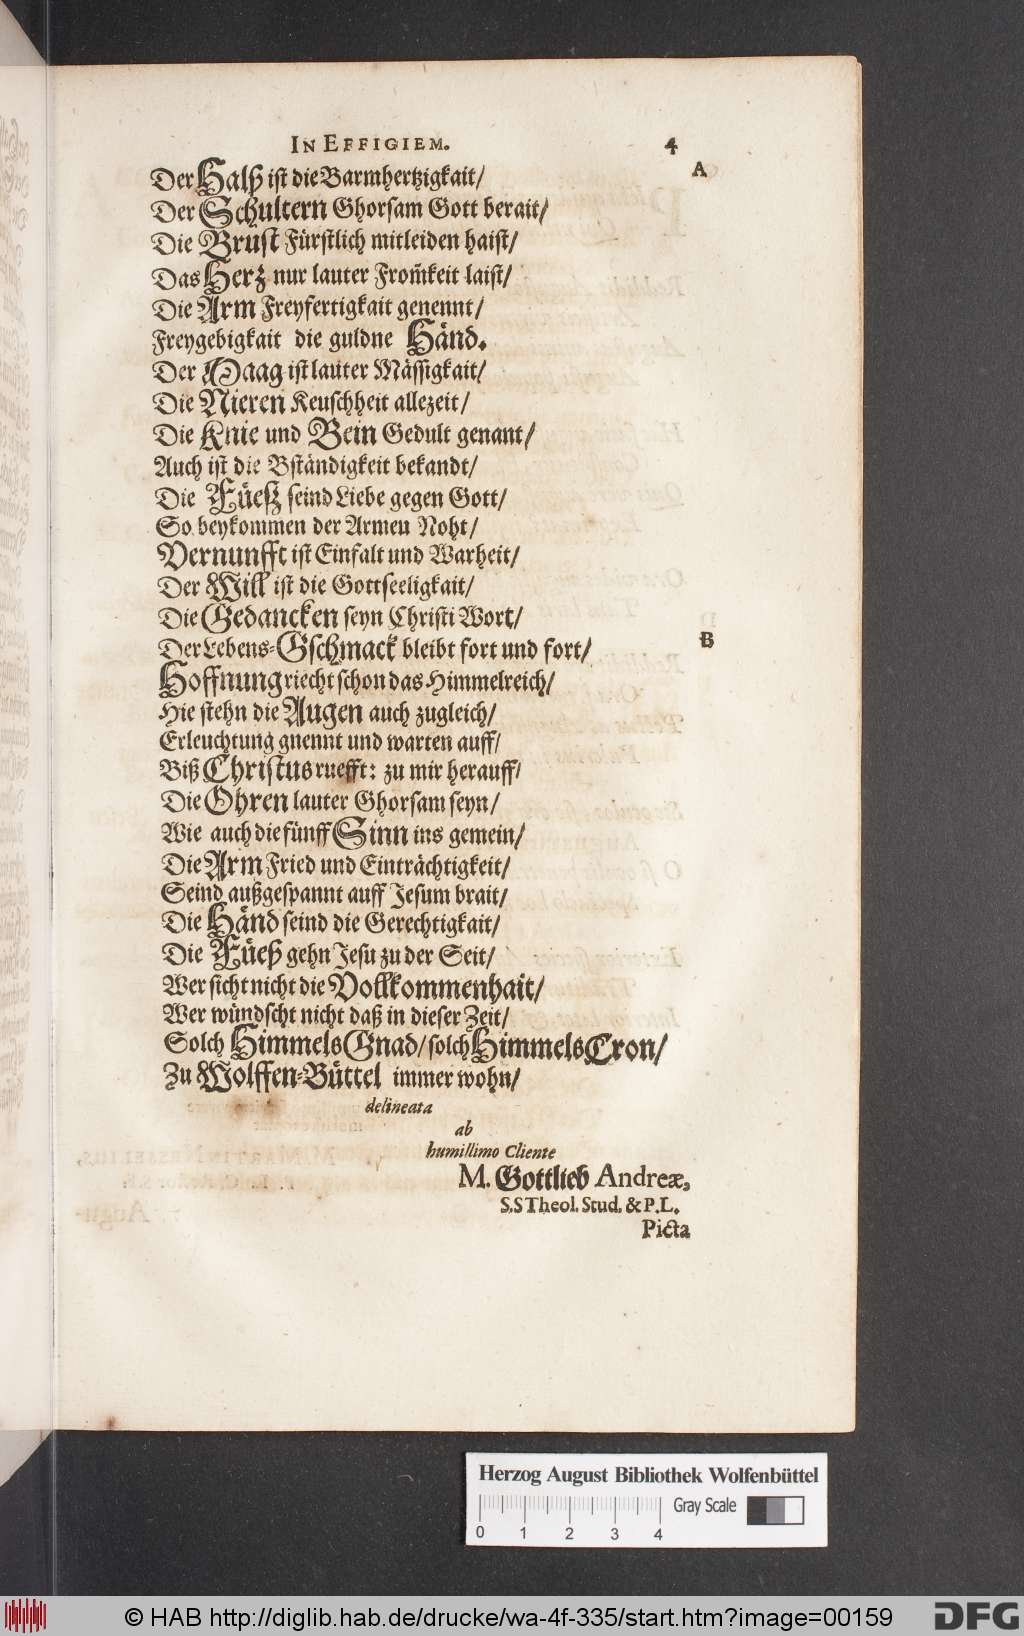 IN EFFIGIEM. 4
A
Der Halß ist die Barmhertzigkait/
Der Schultern Ghorsam Gott berait/
Die Brust Fürstlich mitleiden haist/
Das Herz nur lauter From̃keit laist/
Die Arm Freyfertigkait genennt/
Freygebigkait die guldne Händ.
Der Maag ist lauter Mässigkait/
Die Nieren Keuschheit allezeit/
Die Knie und Bein Gedult genant/
Auch ist die Bständigkeit bekandt/
Die Füeß seind Liebe gegen Gott/
So beykommen der Armen Noht/
Vernunfft ist Einfalt und Warheit/
Der Will ist die Gottseeligkait/
Die Gedancken seyn Christi Wort/
Der Lebens-Gschmack bleibt fort und fort/
B
Hoffnung riecht schon das Himmelreich/
Hie stehn die Augen auch zugleich/
Erleuchtung gnennt und warten auff/
Biß Christus ruefft: zu mir herauff/
Die Ohren lauter Ghorsam seyn/
Wie auch die fünff Sinn ins gemein/
Die Arm Fried und Einträchtigkeit/
Seind außgespannt auff Jesum brait/
Die Händ seind die Gerechtigkait/
Die Füeß gehn Jesu zu der Seit/
Wer sicht nicht die Vollkommenhait/
Wer wündscht nicht daß in dieser Zeit/
Solch Himmels Gnad/ solch Himmels Cron/
Zu Wolffen-Büttel immer wohn/
delineata
ab
humillimo Cliente
M. Gottlieb Andreæ,
S.S Theol. Stud. & P.L.
Picta
Herzog August Bibliothek Wolfenbüttel
Gray Scale
0 1 2 3 4
© HAB http://diglib.hab.de/drucke/wa-4f-335/start.htm?image=00159
DFG